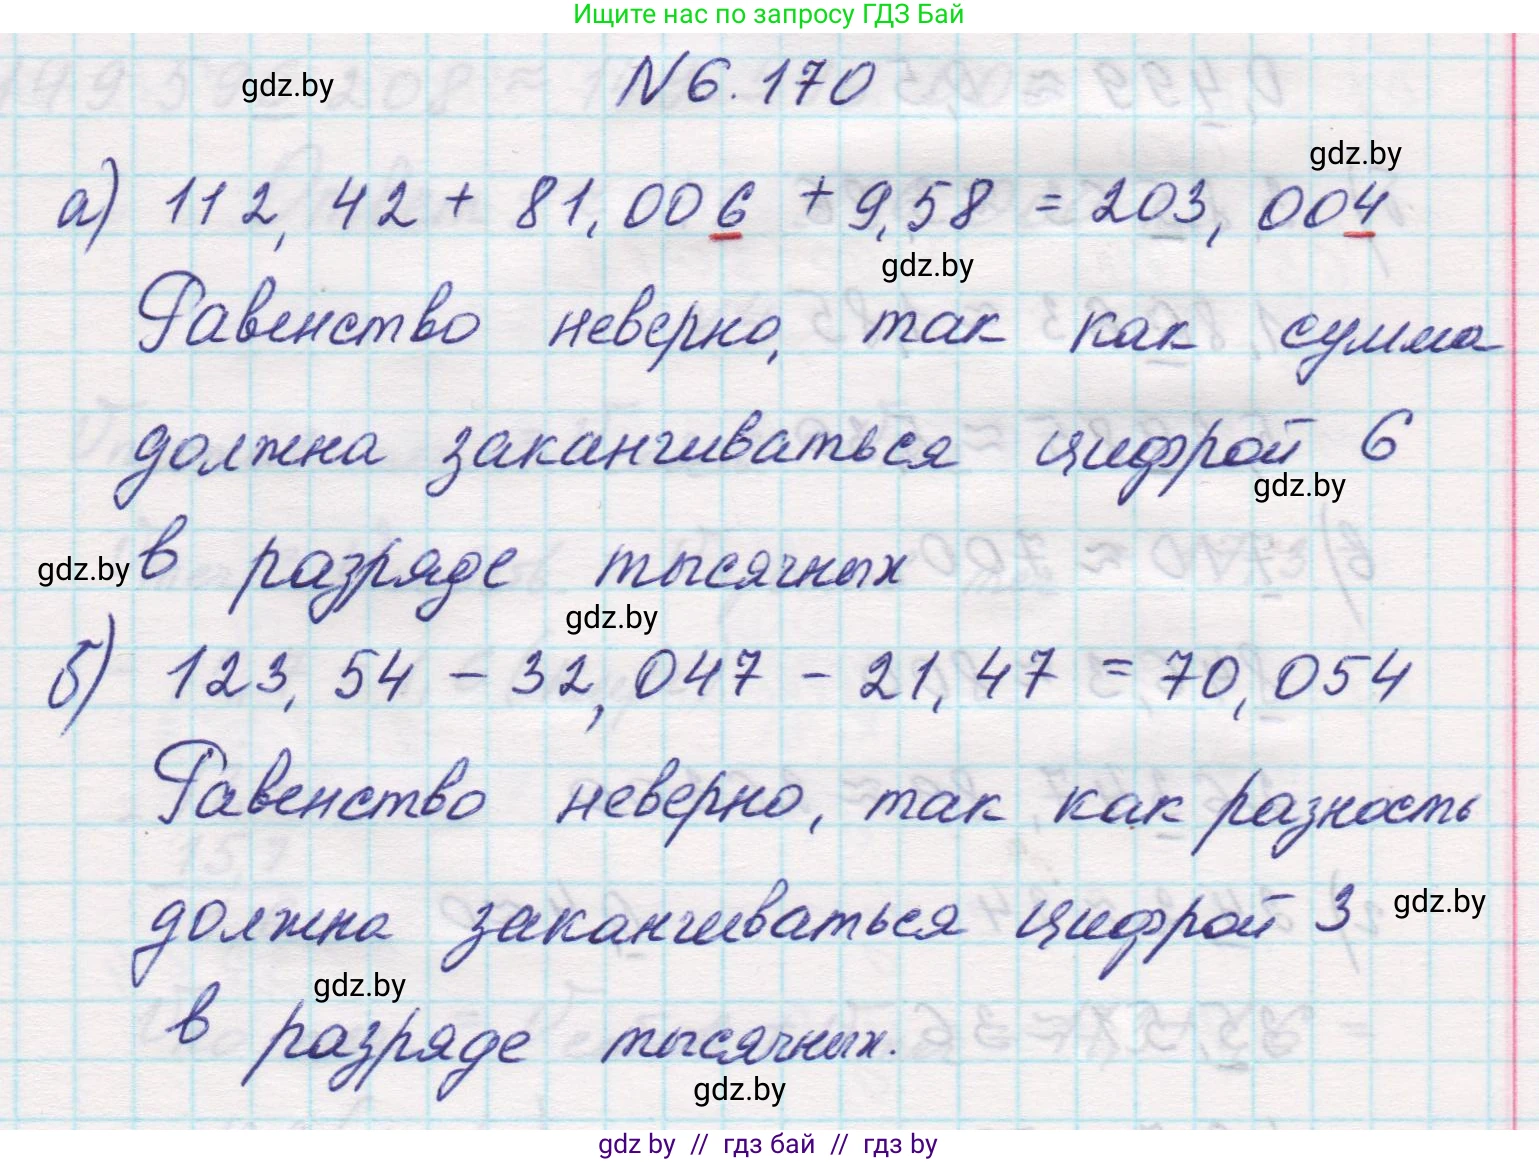 Ищите нас по запросу ГДЗ Бай
gdz.by
N 6.170
gdz.by
а) 112,42 + 81,006 + 9,58 = 203,004
gdz.by
Равенство неверно, так как сумма
должна заканчиваться цифрой 6
gdz.by
gdz.by
в разряде тысячных
gdz.by
б) 123,54 - 32,047 - 21,47 = 70,054
Равенство неверно, так как разность
должна заканчиваться цифрой 3
gdz.by
gdz.by
в разряде тысячных.
gdz.by
gdz by // гдз бай // гдз by